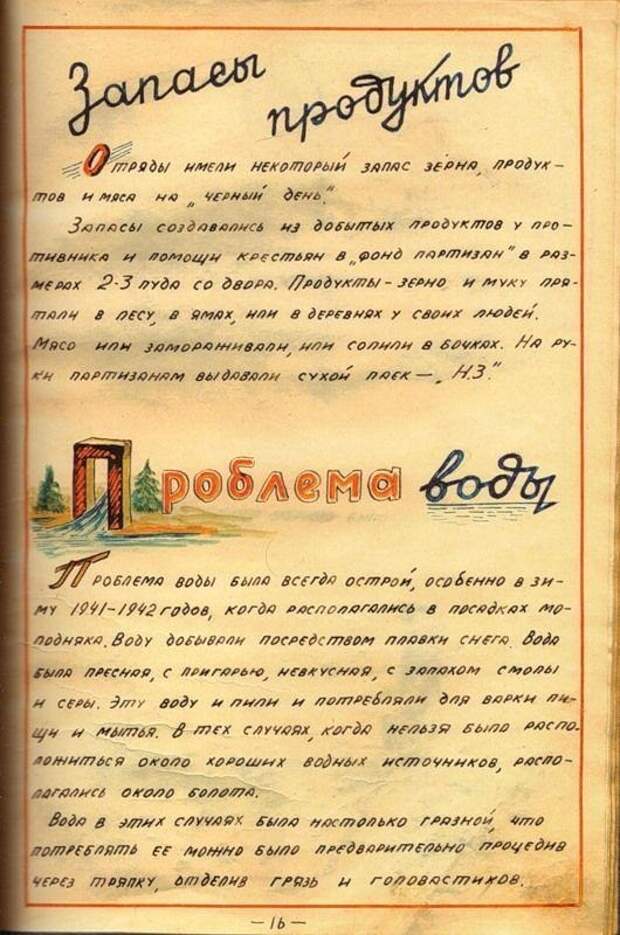 Запасы
продуктов
Отряды имели некоторый запас зерна, продук-
тов и мяса на „черный день".
Запасы создавались из добытых продуктов у про-
тивника и помощи крестьян в „фонд партизан" в раз-
мерах 2-3 пуда со двора. Продукты - зерно и муку пря-
тали в лесу, в ямах, или в деревнях у своих людей.
Мясо или замораживали, или солили в бочках. На ру-
ки партизанам выдавали сухой паек — „Н.З."
Проблема воды
Проблема воды была всегда острой, особенно в зи-
му 1941-1942 годов, когда располагались в посадках мо-
лодняка. Воду добывали посредством плавки снега. Вода
была пресная, с пригарью, невкусная, с запахом смолы
и серы. Эту воду и пили и потребляли для варки пи-
щи и мытья. В тех случаях, когда нельзя было распо-
ложиться около хороших водных источников, распо-
лагались около болота.
Вода в этих случаях была настолько грязной, что
потреблять ее можно было предварительно процедив
через тряпку, отделив грязь и головастиков.
— 16 —